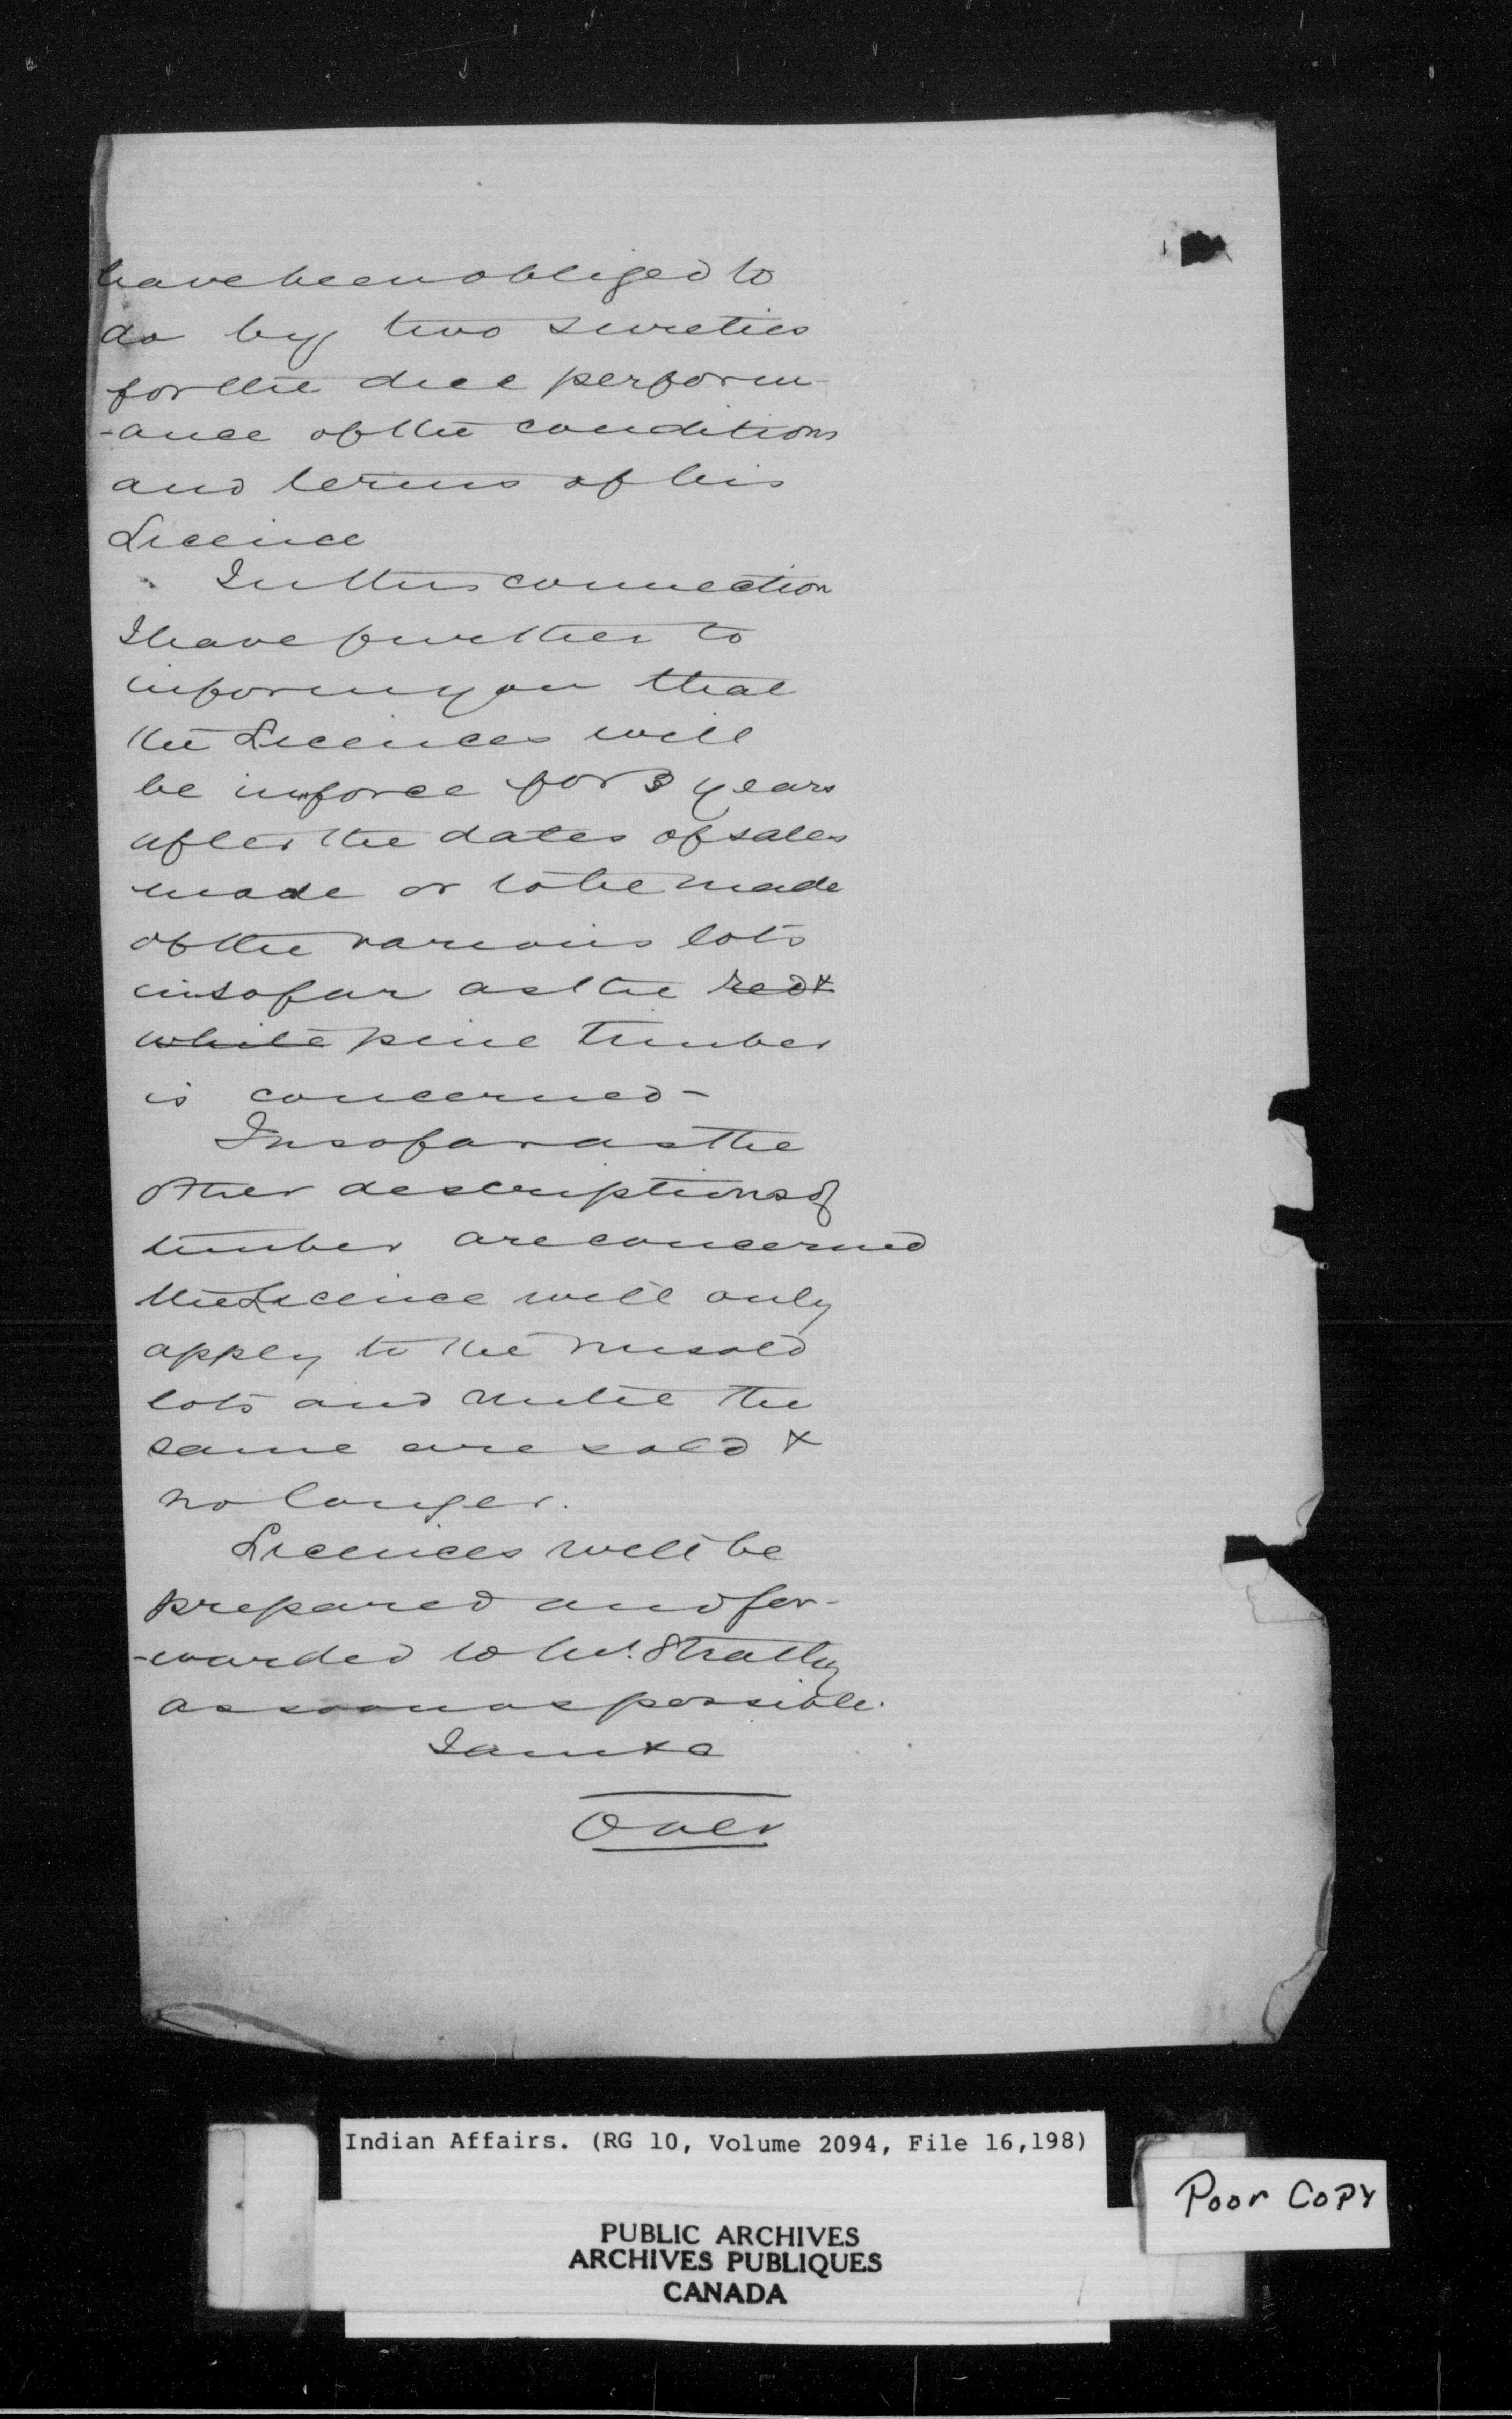 have been obliged to
do by two sureties
for the due perform-
-ance of the conditions
and terms of his
Licence
In this connection
I have further to
inform you that
the Licences will
be in force for 3 years
after the dates of sales
made or to be made
of the various lots
insofar as the red &
white pine timber
is concerned -
Insofar as the
other descriptions of
timber are concerned
the Licence will only
apply to the unsold
lots and until the
same are sold &
no longer.
Licences will be
prepared and for-
-warded to Mr. Stratty
as soon as possible.
I am &c
Over
Indian Affairs. (RG 10, Volume 2094, File 16,198)
Poor Copy
PUBLIC ARCHIVES
ARCHIVES PUBLIQUES
CANADA